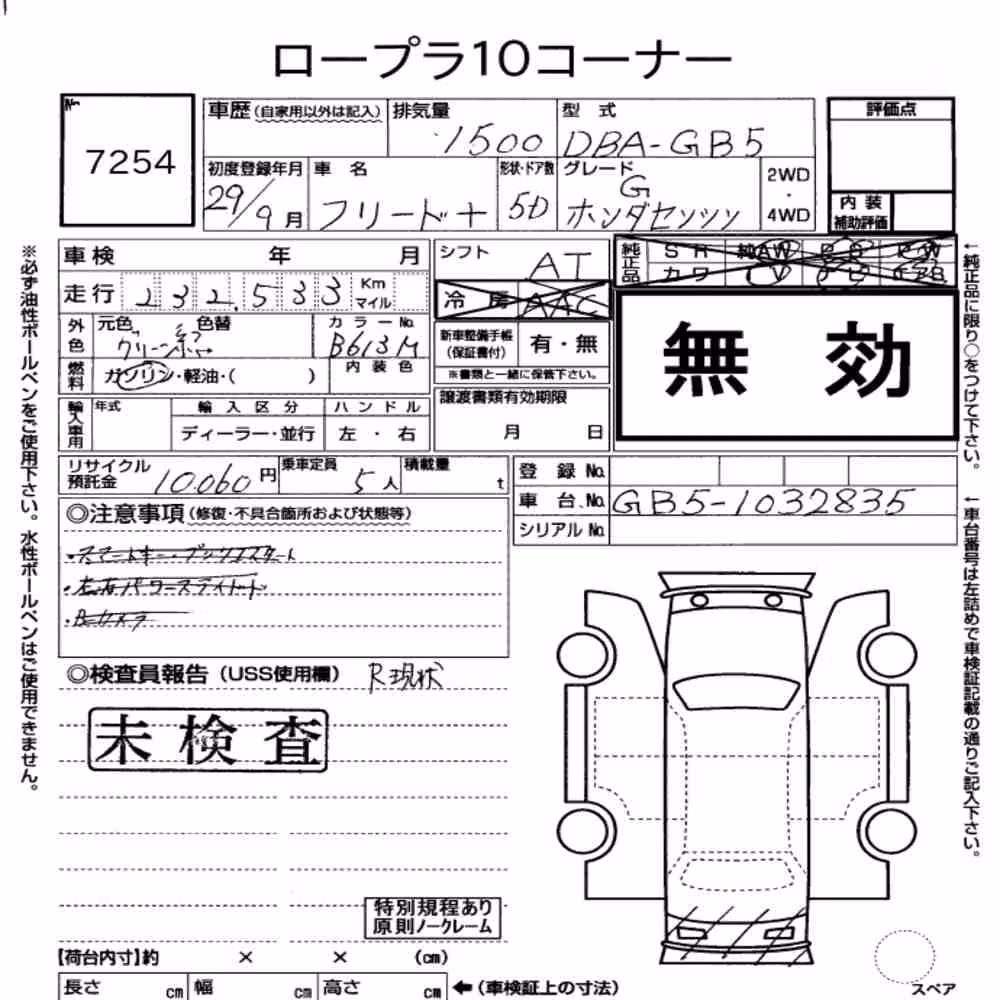 ロープラ10コーナー
No.
7254
車歴(自家用以外は記入)
排気量
1500
型式
DBA-GB5
評価点
内装
補助評価
初度登録年月
29/9月
車名
フリード+
形状・ドア数
5D
グレード
G
ホンダセンシン
2WD
・
4WD
車検 年 月
シフト
AT
純正品
SR 純AW PS PW
カワ TV ナビ エアB
走行 232,533 Km
マイル
冷房 AAC
無効
外色
元色 色替
グリーン
カラーNo.
B613M
新車整備手帳
(保証書付)
有・無
※書類と一緒に保管下さい。
燃料
ガソリン・軽油・( )
内装色
譲渡書類有効期限
月 日
輸入車用
年式
輸入区分
ディーラー・並行
ハンドル
左・右
リサイクル
預託金
10,060円
乗車定員
5人
積載量
t
登録No.
車台No.
GB5-1032835
シリアルNo.
◎注意事項(修復・不具合箇所および状態等)
・スマートキー・プッシュスタート
・左右パワースライドドア
・Bカメラ
◎検査員報告(USS使用欄) R現状
未検査
特別規程あり
原則ノークレーム
【荷台内寸】約 × × (cm)
長さ cm 幅 cm 高さ cm ←(車検証上の寸法)
スペア
※必ず油性ボールペンをご使用下さい。水性ボールペンはご使用できません。
←純正品に限り○をつけて下さい。
←車台番号は左詰めで車検証記載の通りご記入下さい。